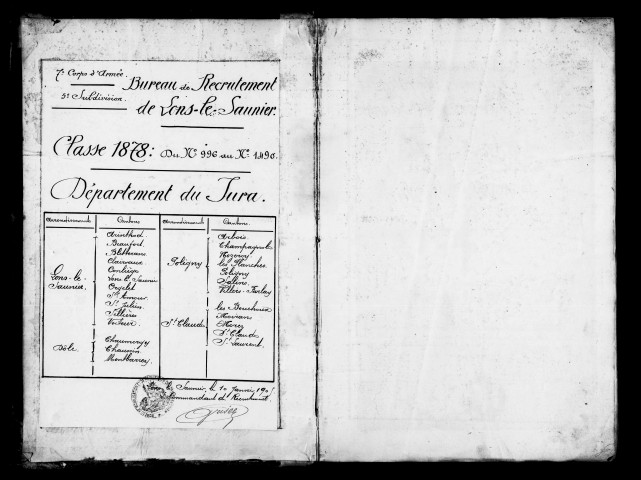 7e Corps d'Armée
5e Subdivision.
Bureau de Recrutement
de Lons-le-Saunier.
Classe 1878: Du No 996 au No 1490.
Département du Jura.
Arrondissements Cantons
Lons-le-Saunier
Arinthod
Beaufort
Bletterans
Clairvaux
Conliège
Lons-le-Saunier
Orgelet
St Amour
St Julien
Sellières
Voiteur
Dôle
Chaumergy
Chaussin
Montbarrey
Arrondissements Cantons
Poligny
Arbois
Champagnole
Nozeroy
les Planches
Poligny
Salins
Villers-Farlay
St Claude
les Bouchoux
Moirans
Morez
St Claude
St Laurent.
Lons le Saunier, le 1er Janvier
Commandant de Recrutement